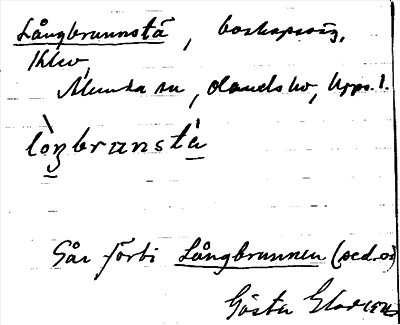 Långbrunnstå, boskapsväg,
Munka sn, Olands hd, Upps. l.
lòŋbrunstá
Går förbi Långbrunnen (se d.o.)
Gösta